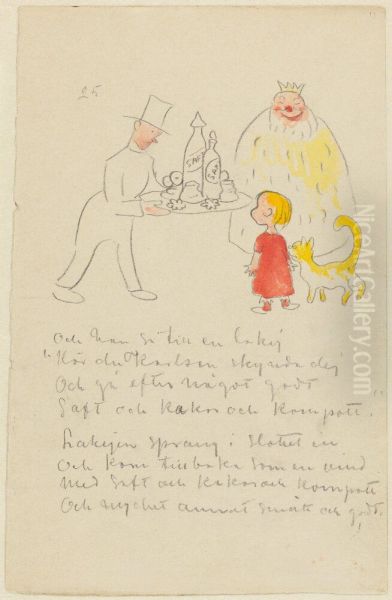 25.
SAFT
SAFT
Och han sa till en lakej
"Hör du Karlsson skynda dej
Och gå efter något godt
Saft och kakor och kompott."
Lakejen sprang i slottet in
Och kom tillbaka som en vind
Med saft och kakor och kompott
Och mycket annat smått och godt.
alamy